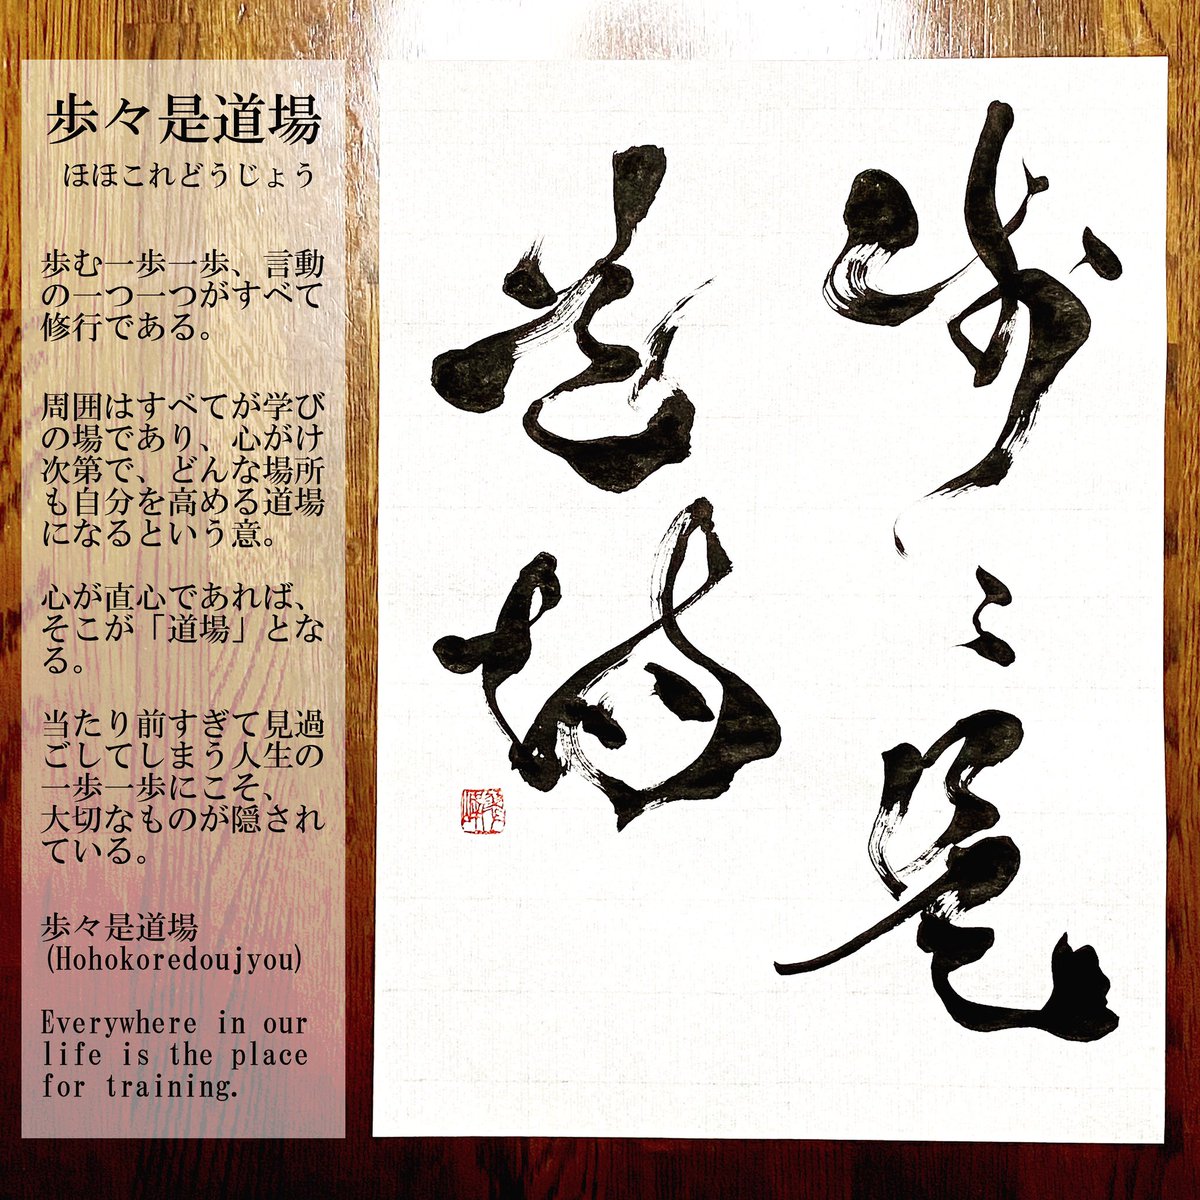 歩々是道場
ほほこれどうじょう
歩む一歩一歩、言動
の一つ一つがすべて
修行である。
周囲はすべてが学び
の場であり、心がけ
次第で、どんな場所
も自分を高める道場
になるという意。
心が直心であれば、
そこが「道場」とな
る。
当たり前すぎて見過
ごしてしまう人生の
一歩一歩にこそ、
大切なものが隠され
ている。
歩々是道場
(Hohokoredoujyou)
Everywhere in our
life is the place
for training.
歩々是
道場